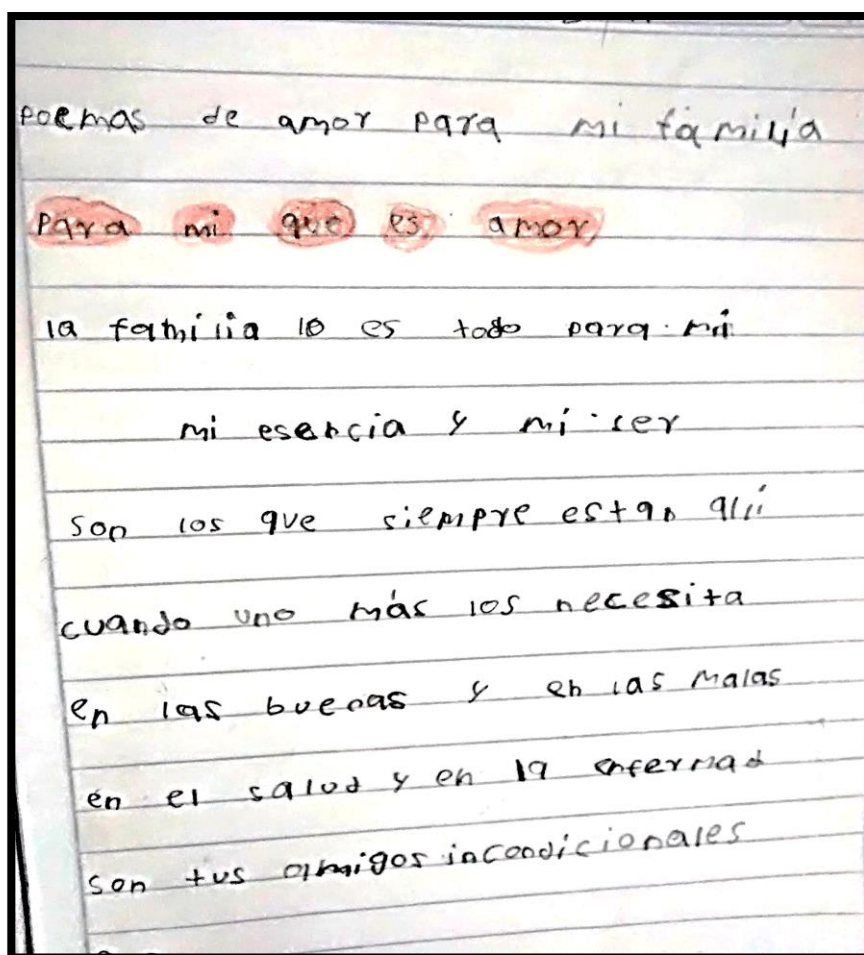 poemas de amor para mi familia
para mi que es amor
la familia lo es todo para mi
mi esencia y mi ser
son los que siempre estan allí
cuando uno más los necesita
en las buenas y en las malas
en el salud y en la enfermad
son tus amigos incondicionales